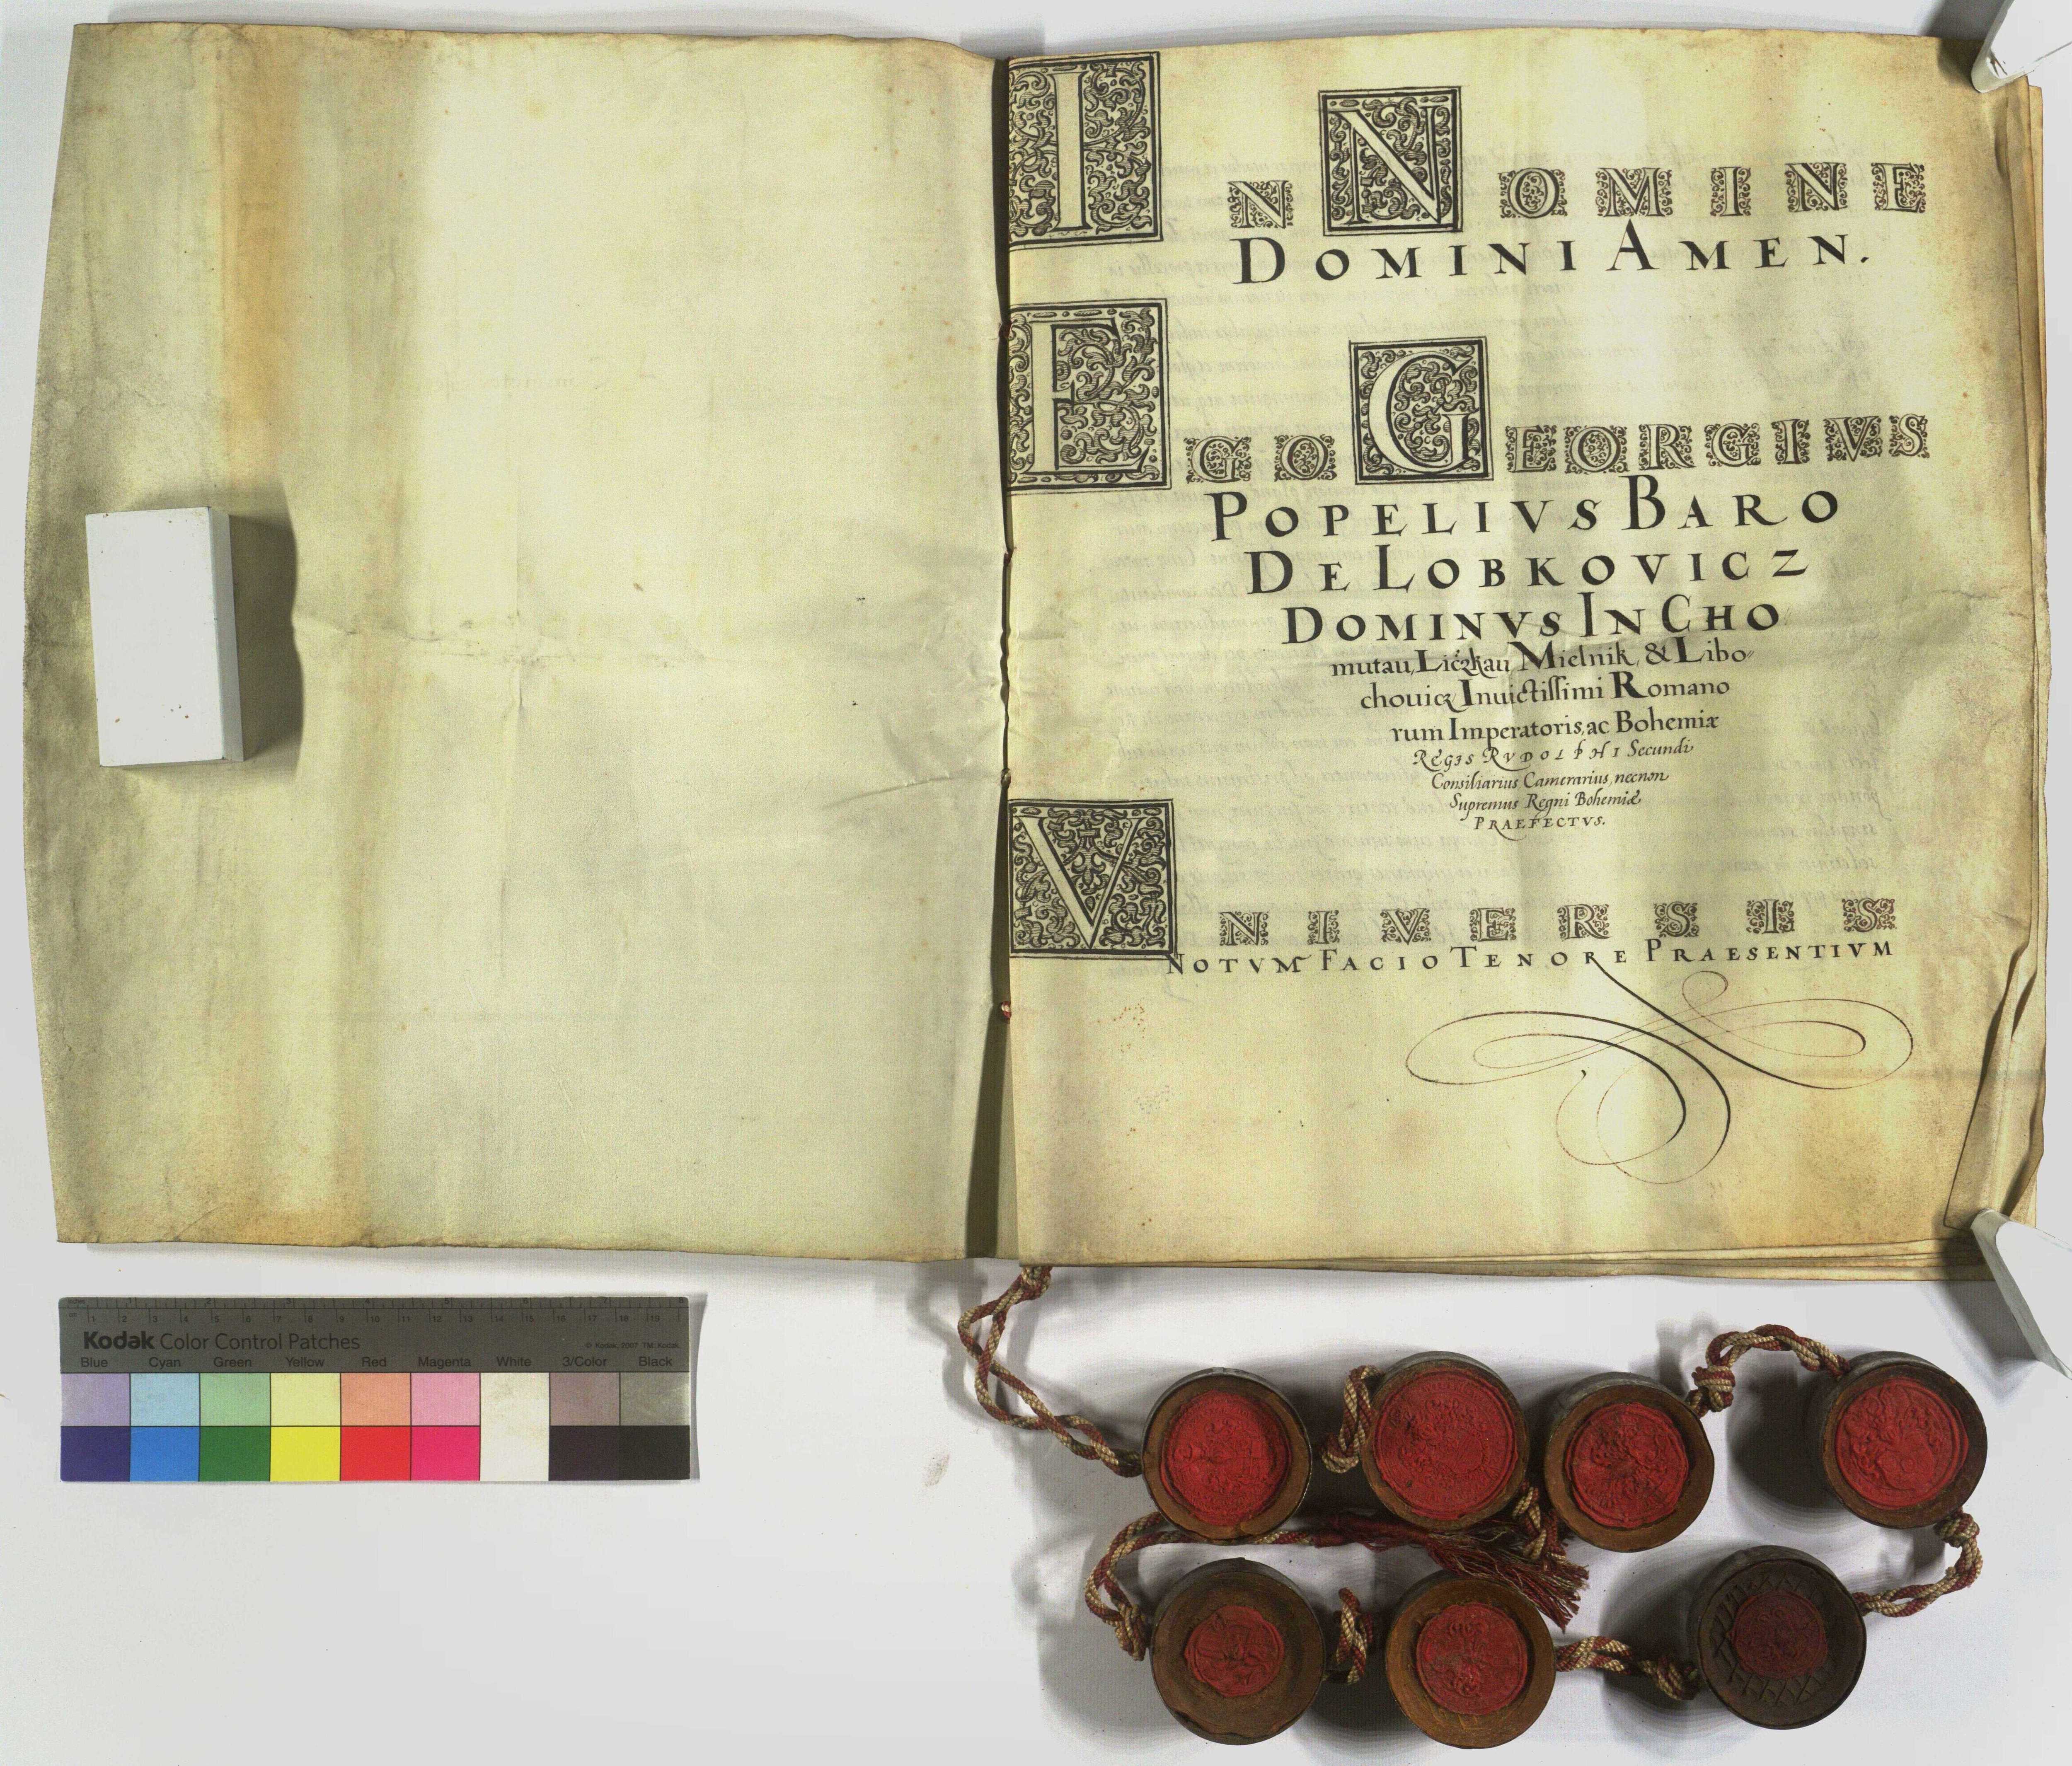 IN NOMINE
DOMINI AMEN.
EGO GEORGIVS
POPELIVS BARO
DE LOBKOVICZ
DOMINVS IN CHO
mutau, Liczkau Mielnik, & Libo-
chouicz Inuictissimi Romano
rum Imperatoris, ac Bohemiæ
REGIS RVDOLPHI Secundi
Consiliarius Camerarius, necnon
Supremus Regni Bohemiæ
PRAEFECTVS.
VNIVERSIS
NOTVM FACIO TENORE PRAESENTIVM
Kodak Color Control Patches
© Kodak, 2007 TM: Kodak
Blue Cyan Green Yellow Red Magenta White 3/Color Black